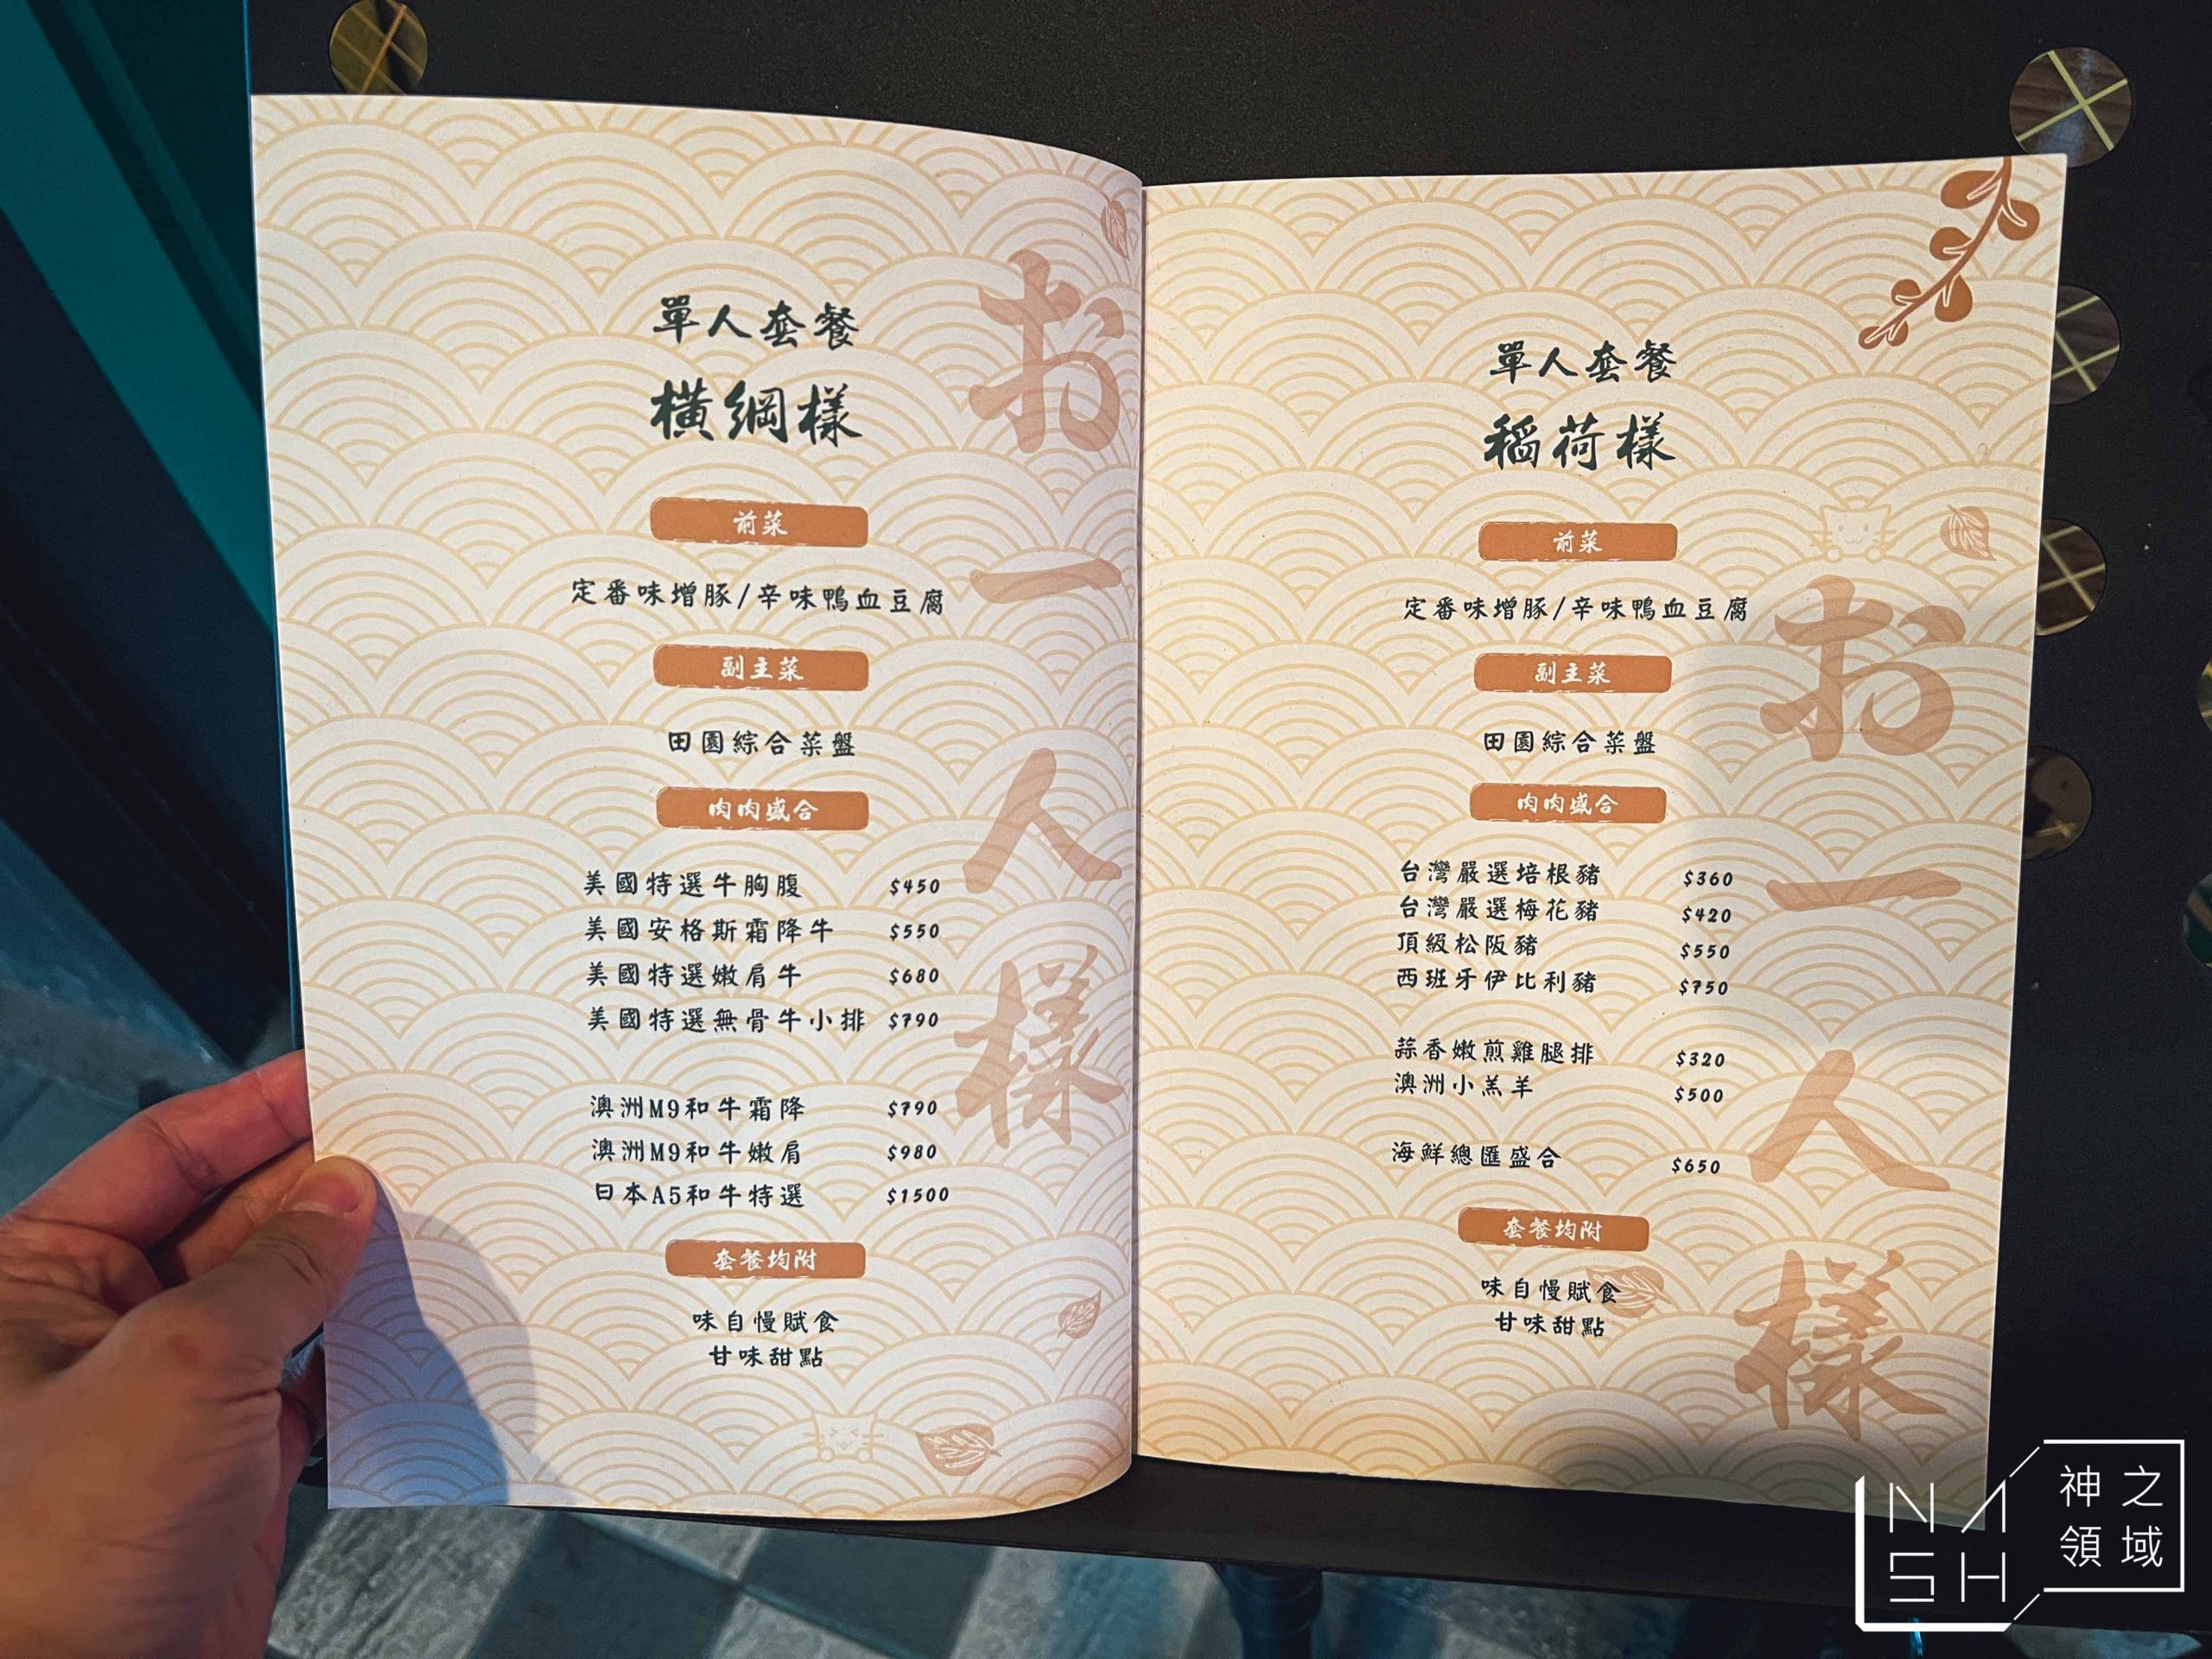 單人套餐
橫綱樣
前菜
定番味增豚/辛味鴨血豆腐
副主菜
田園綜合菜盤
肉肉盛合
美國特選牛胸腹 $450
美國安格斯霜降牛 $550
美國特選嫩肩牛 $680
美國特選無骨牛小排 $790
澳洲M9和牛霜降 $790
澳洲M9和牛嫩肩 $980
日本A5和牛特選 $1500
套餐均附
味自慢賦食
甘味甜點
お一人樣
單人套餐
稻荷樣
前菜
定番味增豚/辛味鴨血豆腐
副主菜
田園綜合菜盤
肉肉盛合
台灣嚴選培根豬 $360
台灣嚴選梅花豬 $420
頂級松阪豬 $550
西班牙伊比利豬 $750
蒜香嫩煎雞腿排 $320
澳洲小羔羊 $500
海鮮總匯盛合 $650
套餐均附
味自慢賦食
甘味甜點
お一人樣
NASH
神之
領域